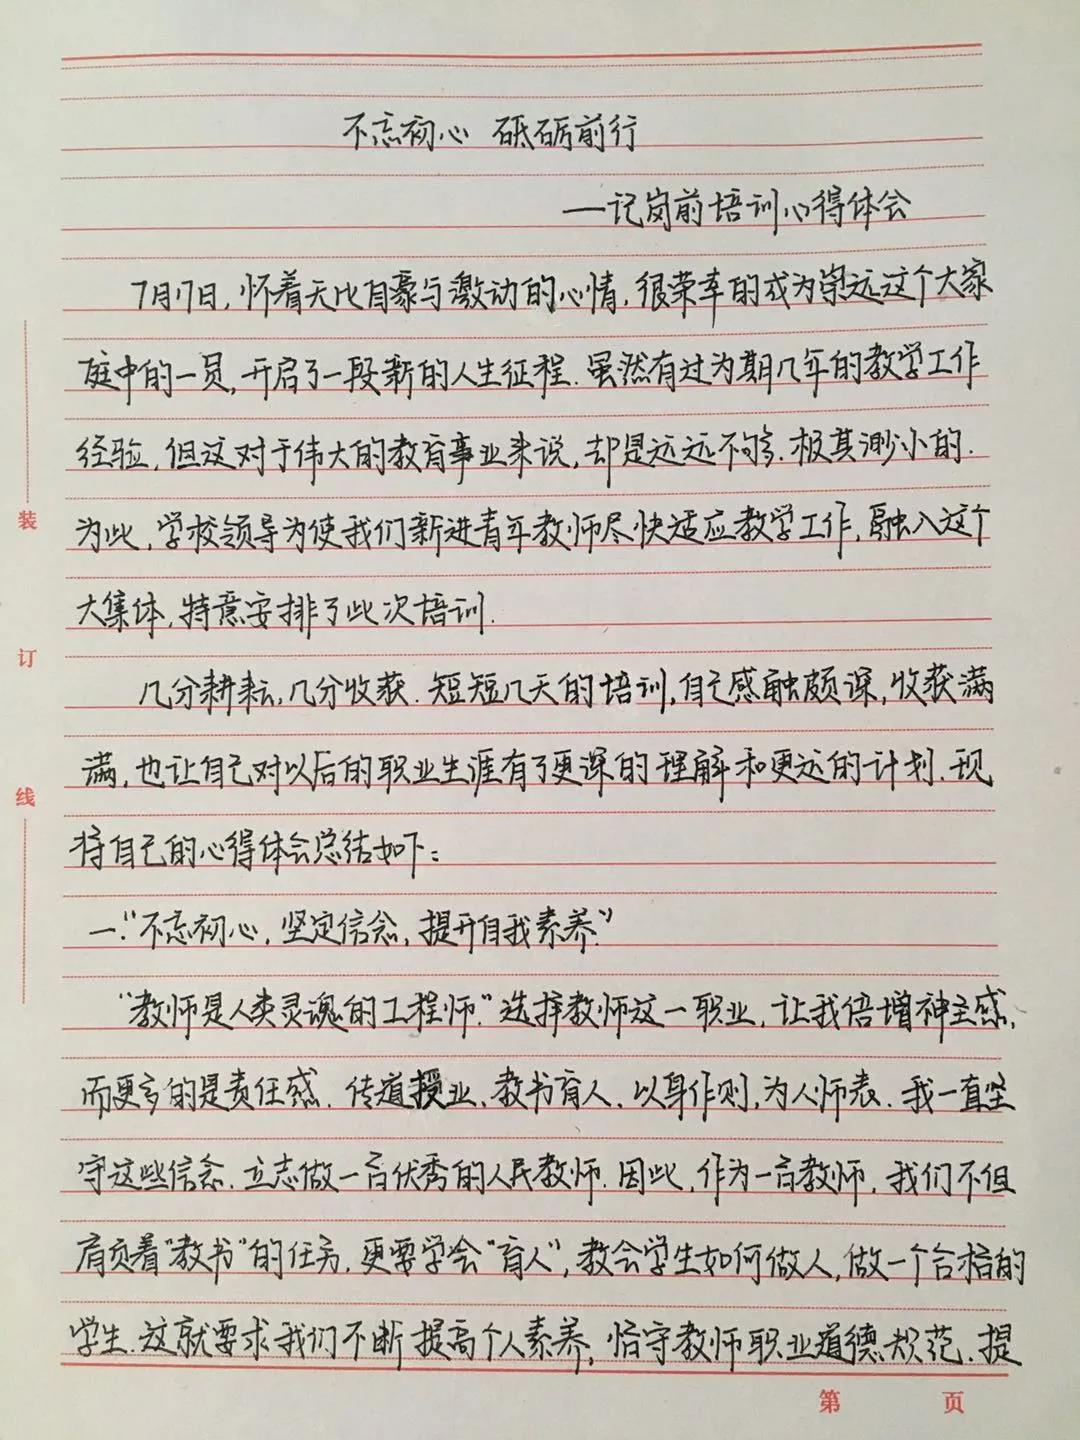 不忘初心 砥砺前行
——记岗前培训心得体会
7月17日，怀着无比自豪与激动的心情，很荣幸的成为崇远这个大家
庭中的一员，开启了一段新的人生征程．虽然有过为期几年的教学工作
经验，但这对于伟大的教育事业来说，却是远远不够．极其渺小的．
为此，学校领导为使我们新进青年教师尽快适应教学工作，融入这个
大集体，特意安排了此次培训．
几分耕耘，几分收获．短短几天的培训，自己感触颇深，收获满
满，也让自己对以后的职业生涯有了更深的理解和更远的计划．现
将自己的心得体会总结如下：
一．“不忘初心，坚定信念，提升自我素养．”
“教师是人类灵魂的工程师．”选择教师这一职业，让我倍增神圣感，
而更多的是责任感．传道授业、教书育人、以身作则，为人师表．我一直坚
守这些信念．立志做一名优秀的人民教师．因此，作为一名教师，我们不但
肩负着“教书”的任务，更要学会“育人”，教会学生如何做人，做一个合格的
学生．这就要求我们不断提高个人素养，恪守教师职业道德规范．提
装
订
线
第 页